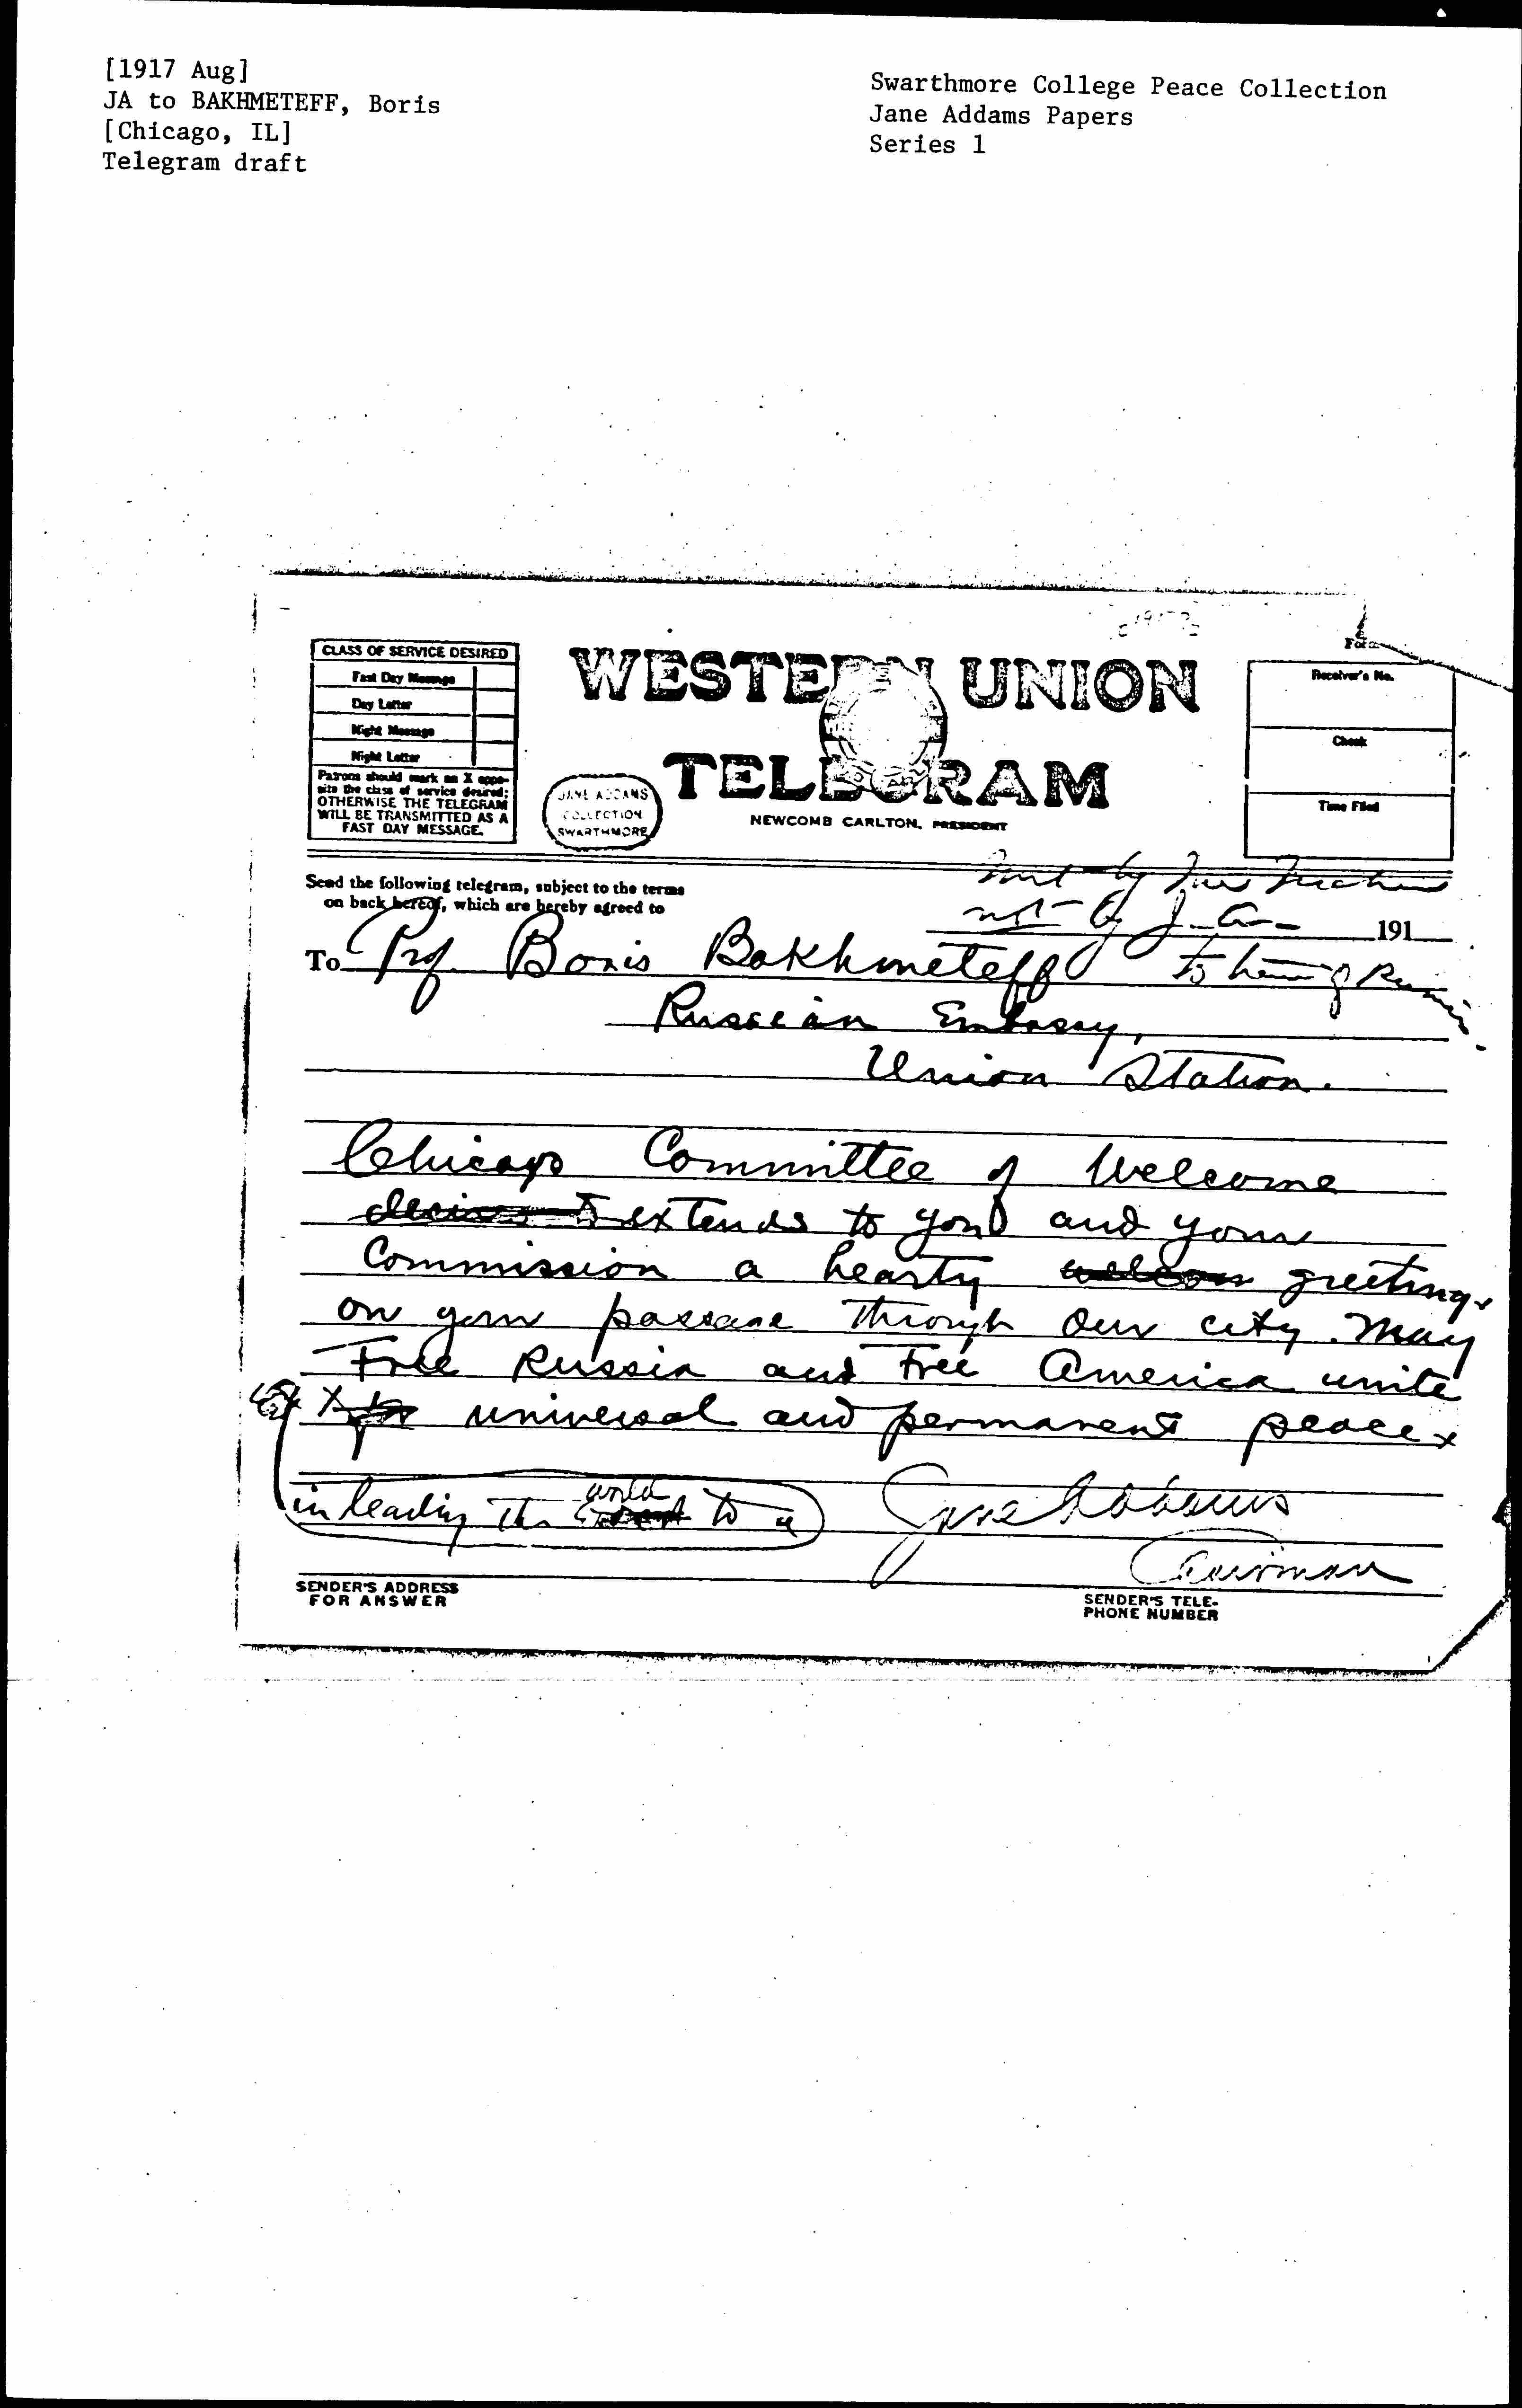 [1917 Aug]
JA to BAKHMETEFF, Boris
[Chicago, IL]
Telegram draft
Swarthmore College Peace Collection
Jane Addams Papers
Series 1
CLASS OF SERVICE DESIRED
Fast Day Message
Day Letter
Night Message
Night Letter
Patrons should mark an X oppo-
site the class of service desired;
OTHERWISE THE TELEGRAM
WILL BE TRANSMITTED AS A
FAST DAY MESSAGE.
WESTERN UNION
TELEGRAM
NEWCOMB CARLTON, PRESIDENT
JANE ADDAMS
COLLECTION
SWARTHMORE
Receiver's No.
Check
Time Filed
Send the following telegram, subject to the terms
on back hereof, which are hereby agreed to
sent by
not by J. A. 191
To Prof. Boris Bakhmeteff
Russian Embassy,
Union Station.
Chicago Committee of Welcome
desires to extends to you and your
Commission a hearty welcome greeting
on your passage through our city. May
Free Russia and Free America unite
x for universal and permanent peace x
in leading the world to a
Jane Addams
Chairman
SENDER'S ADDRESS
FOR ANSWER
SENDER'S TELE-
PHONE NUMBER